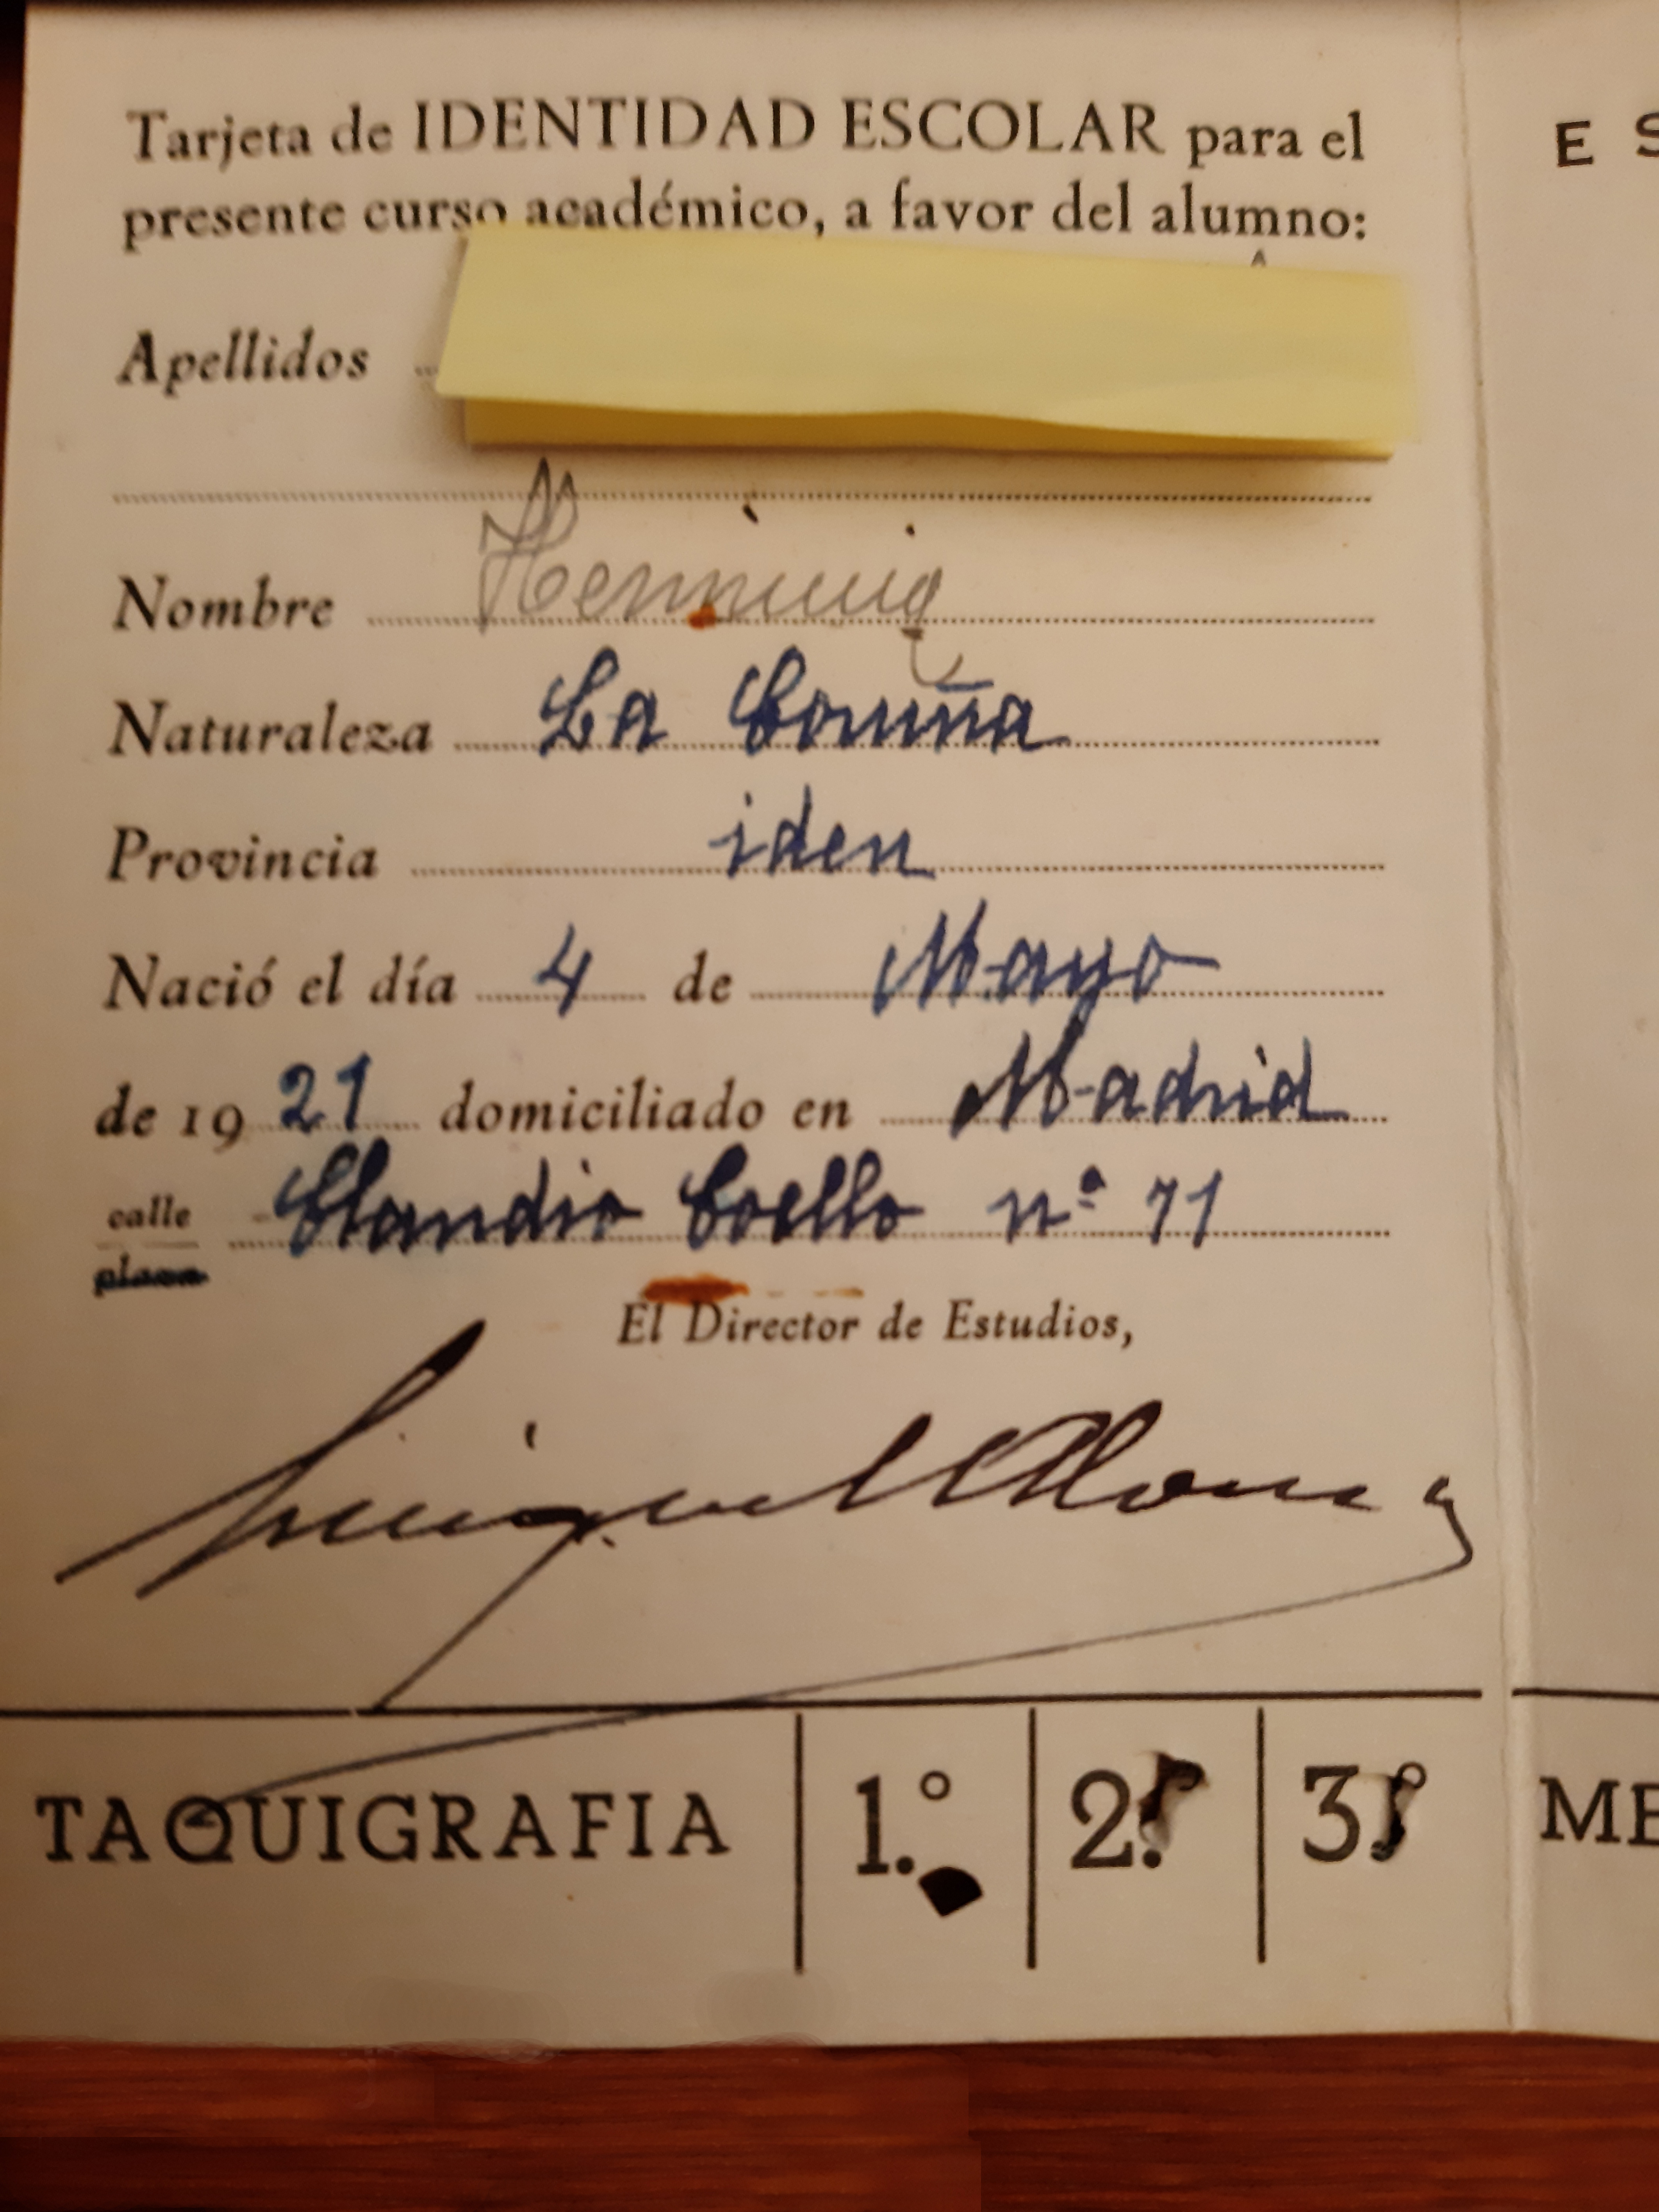 Tarjeta de IDENTIDAD ESCOLAR para el
presente curso académico, a favor del alumno:
E S
Apellidos
Nombre
Naturaleza La Coruña
Provincia iden
Nació el día 4 de Mayo
de 1921 domiciliado en Madrid
calle Claudio Coello nº 71
plaza
El Director de Estudios,
TAQUIGRAFIA 1.º 2.º 3.º ME